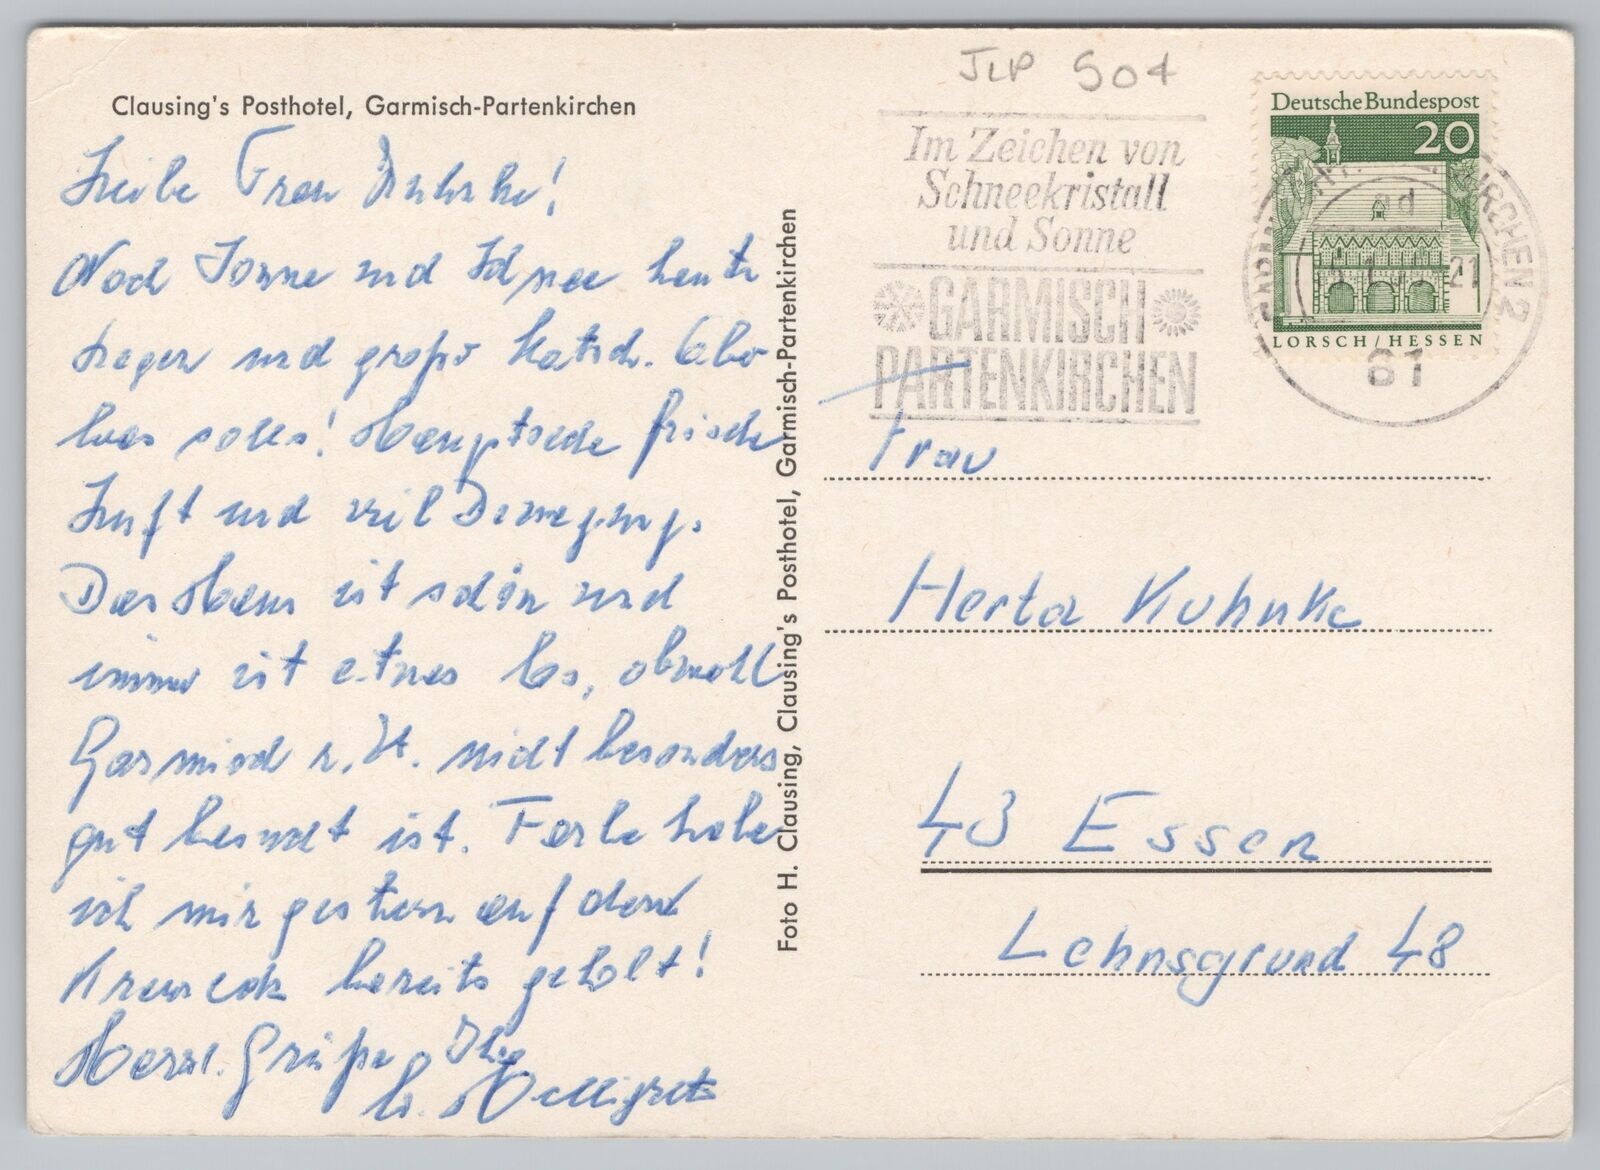 Clausing's Posthotel, Garmisch-Partenkirchen
Liebe Frau Kuhnke!
Noch Sonne und Schnee heute
Regen und große Matsch. Aber
was solls! Hauptsache frische
Luft und viel Bewegung.
Das Haus ist schön und
immer ist etwas los, obwohl
Garmisch z. Zt. nicht besonders
gut besucht ist. Farbe habe
ich mir gestern auf dem
Kreuzeck bereits geholt!
Herzl. Grüße Ihre
Foto H. Clausing, Clausing's Posthotel, Garmisch-Partenkirchen
JLP 504
Im Zeichen von
Schneekristall
und Sonne
GARMISCH
PARTENKIRCHEN
Deutsche Bundespost
20
LORSCH/HESSEN
81
Frau
Herta Kuhnke
43 Essen
Lehnsgrund 48